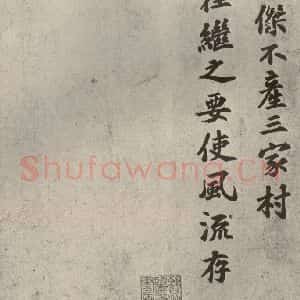 傑不產三家村
繼之要使風流存
Shufawang.cn